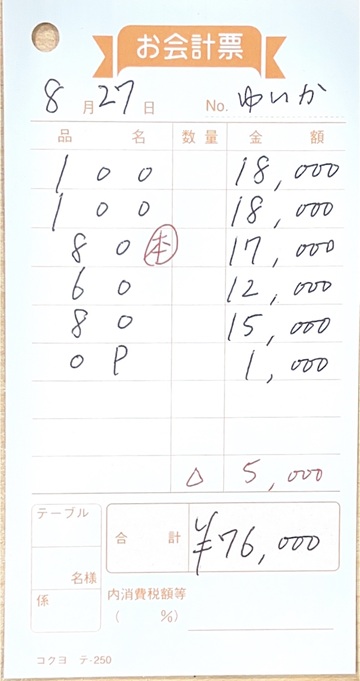 お会計票
8月27日 No. ゆいか
品名 数量 金額
100 18,000
100 18,000
80 本 17,000
60 12,000
80 15,000
OP 1,000
△ 5,000
テーブル
名様
係
合計 ¥76,000
内消費税額等
( %)
コクヨ テ-250